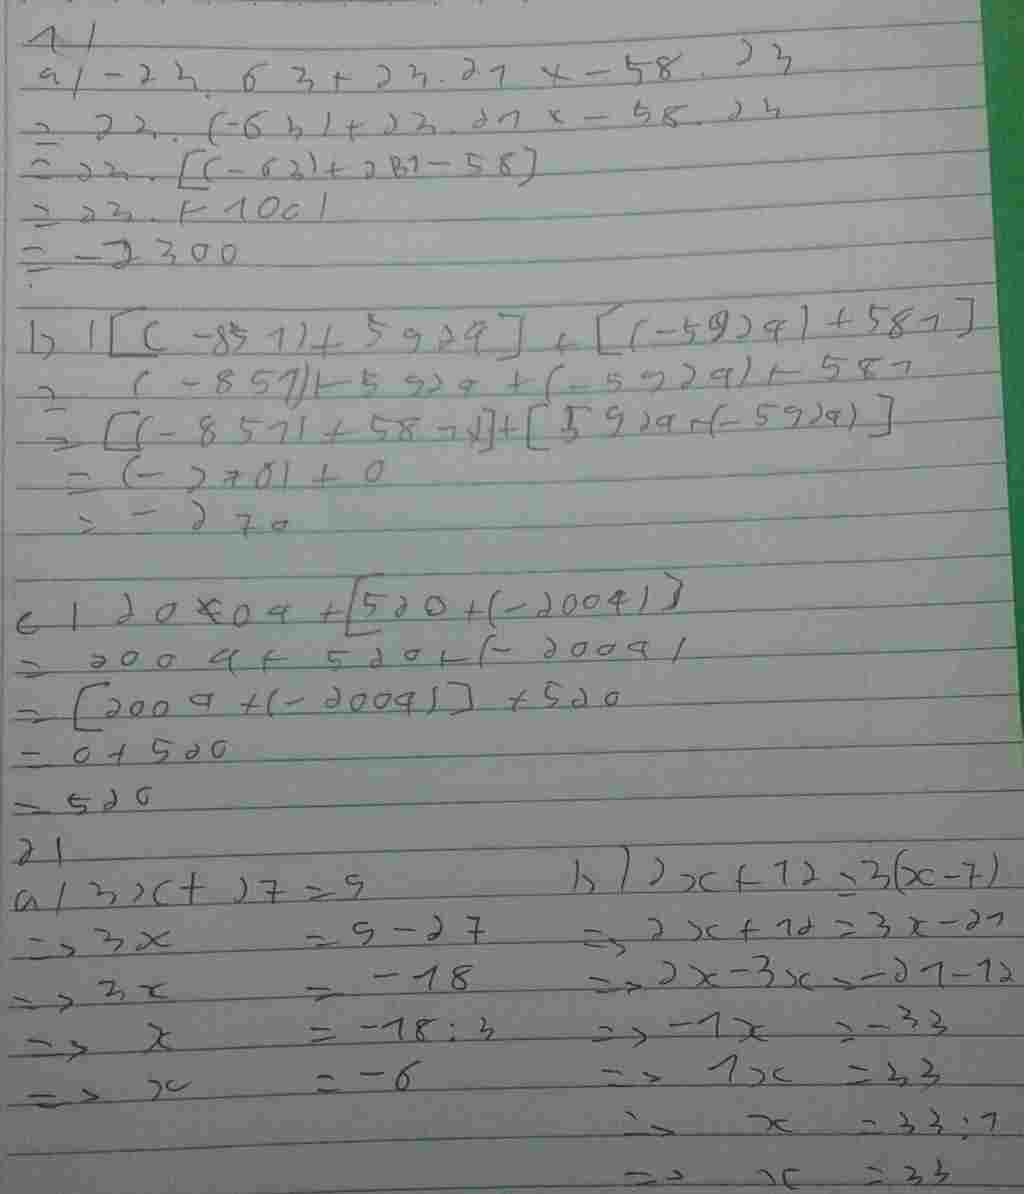 1/
a/ -23. 63 + 23. 21 x - 58. 23
= 23. (-63) + 23. 21 x - 58. 23
= 23. [(-63) + 21 - 58]
= 23. (-100)
= -2300
b/ [(-851) + 5924] + [(-5924) + 581]
= (-851) + 5924 + (-5924) + 581
= [(-851) + 581] + [5924 + (-5924)]
= (-270) + 0
= -270
c/ 2004 + [520 + (-2004)]
= 2004 + 520 + (-2004)
= [2004 + (-2004)] + 520
= 0 + 520
= 520
2/
a/ 3x + 27 = 9
=> 3x = 9 - 27
=> 3x = -18
=> x = -18 : 3
=> x = -6
b/ 2x + 12 = 3(x - 7)
=> 2x + 12 = 3x - 21
=> 2x - 3x = -21 - 12
=> -1x = -33
=> 1x = 33
=> x = 33 : 1
=> x = 33